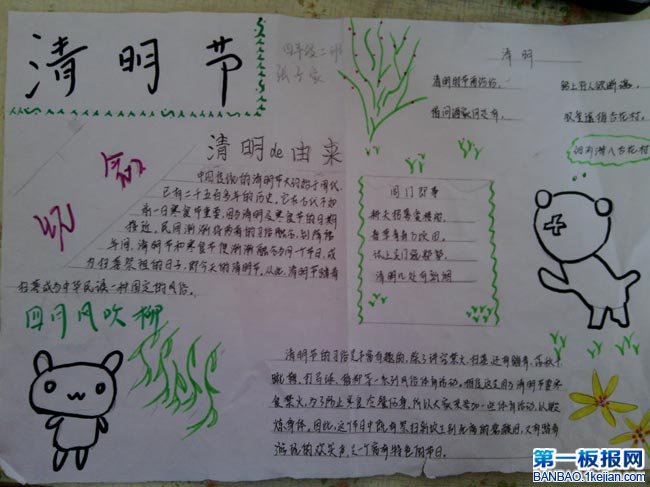 清明节
四年级二班
清明
清明时节雨纷纷，
路上行人欲断魂。
借问酒家何处有，
牧童遥指杏花村。
清明de由来
中国传统的清明节大约始于周代，
已有二千五百多年的历史。它在古代不如
前一日寒食节重要，因为清明及寒食节的日期
接近，民间渐渐将两者的习俗融合，到隋唐
年间，清明节和寒食节便渐渐融合为同一个节日，成
为扫墓祭祖的日子，即今天的清明节。从此，清明节踏青
扫墓成为中华民族一种固定的风俗。
四月风吹柳
清明几处有新烟
清明节的习俗是丰富有趣的，除了讲究禁火、扫墓，还有踏青、荡秋千
蹴鞠、打马球、插柳等一系列风俗体育活动。相传这是因为清明节要寒
食禁火，为了防止寒食冷餐伤身，所以大家来参加一些体育活动，以锻
炼身体。因此，这个节日中既有祭扫新坟生别死离的悲酸泪，又有踏青
游玩的欢笑声，是一个富有特色的节日。
第一板报网
BANBAO.1kejian.com